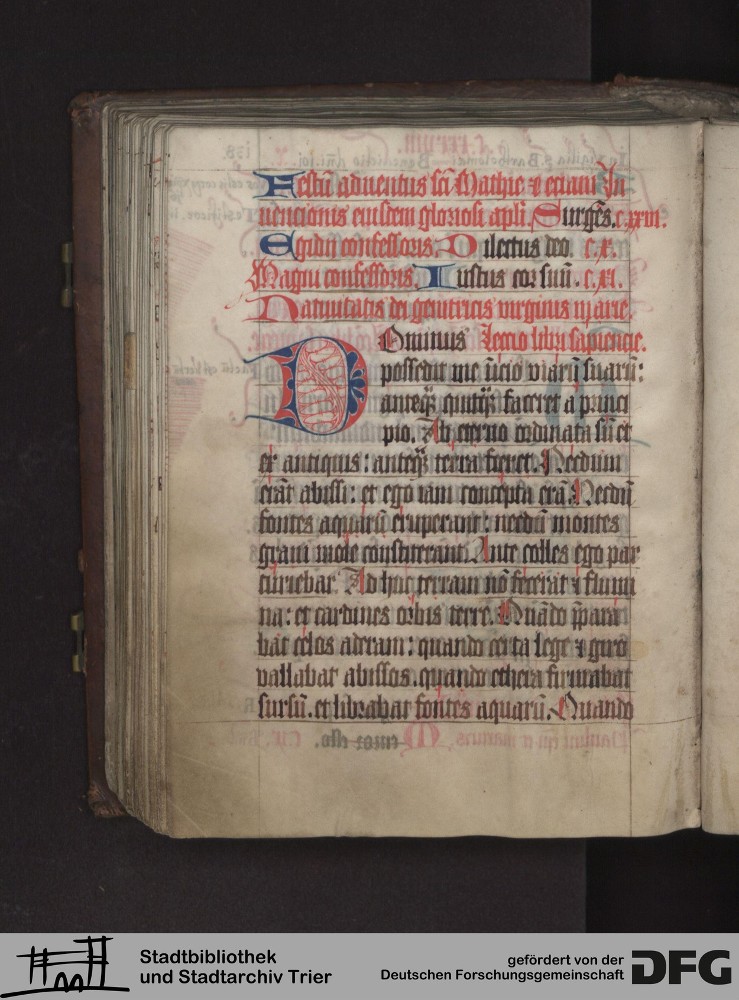 Festū aduentus sci Mathie ⁊ etiam In
uencionis eiusdem gloriosi apli. Surgēs. c. xxiii.
Egidij confessoris. Dilectus deo. c. x.
Magni confessoris. Iustus cor suū. c. xi.
Natiuitatis dei genitricis uirginis marie.
Dominus Lectio libri sapiencie.
possedit me īicio uiarū suarū:
anteq̄ꝫ quitq̄ꝫ faceret a princi
pio. Ab eterno ordinata sū et
ex antiquis: anteq̄ꝫ terra fieret. Necdum
erāt abissi: et ego iam concepta erā. Necdū
fontes aquarū eruperant: necdū montes
graui mole constiterant. Ante colles ego par
turiebar. Adhuc terram nō fecerat ⁊ flumi
na: et cardines orbis terre. Quādo p̄para
bat celos aderam: quando certa lege ⁊ giro
uallabat abissos. quando ethera firmabat
sursū. et librabat fontes aquarū. Quando
Stadtbibliothek
und Stadtarchiv Trier
gefördert von der
Deutschen Forschungsgemeinschaft
DFG